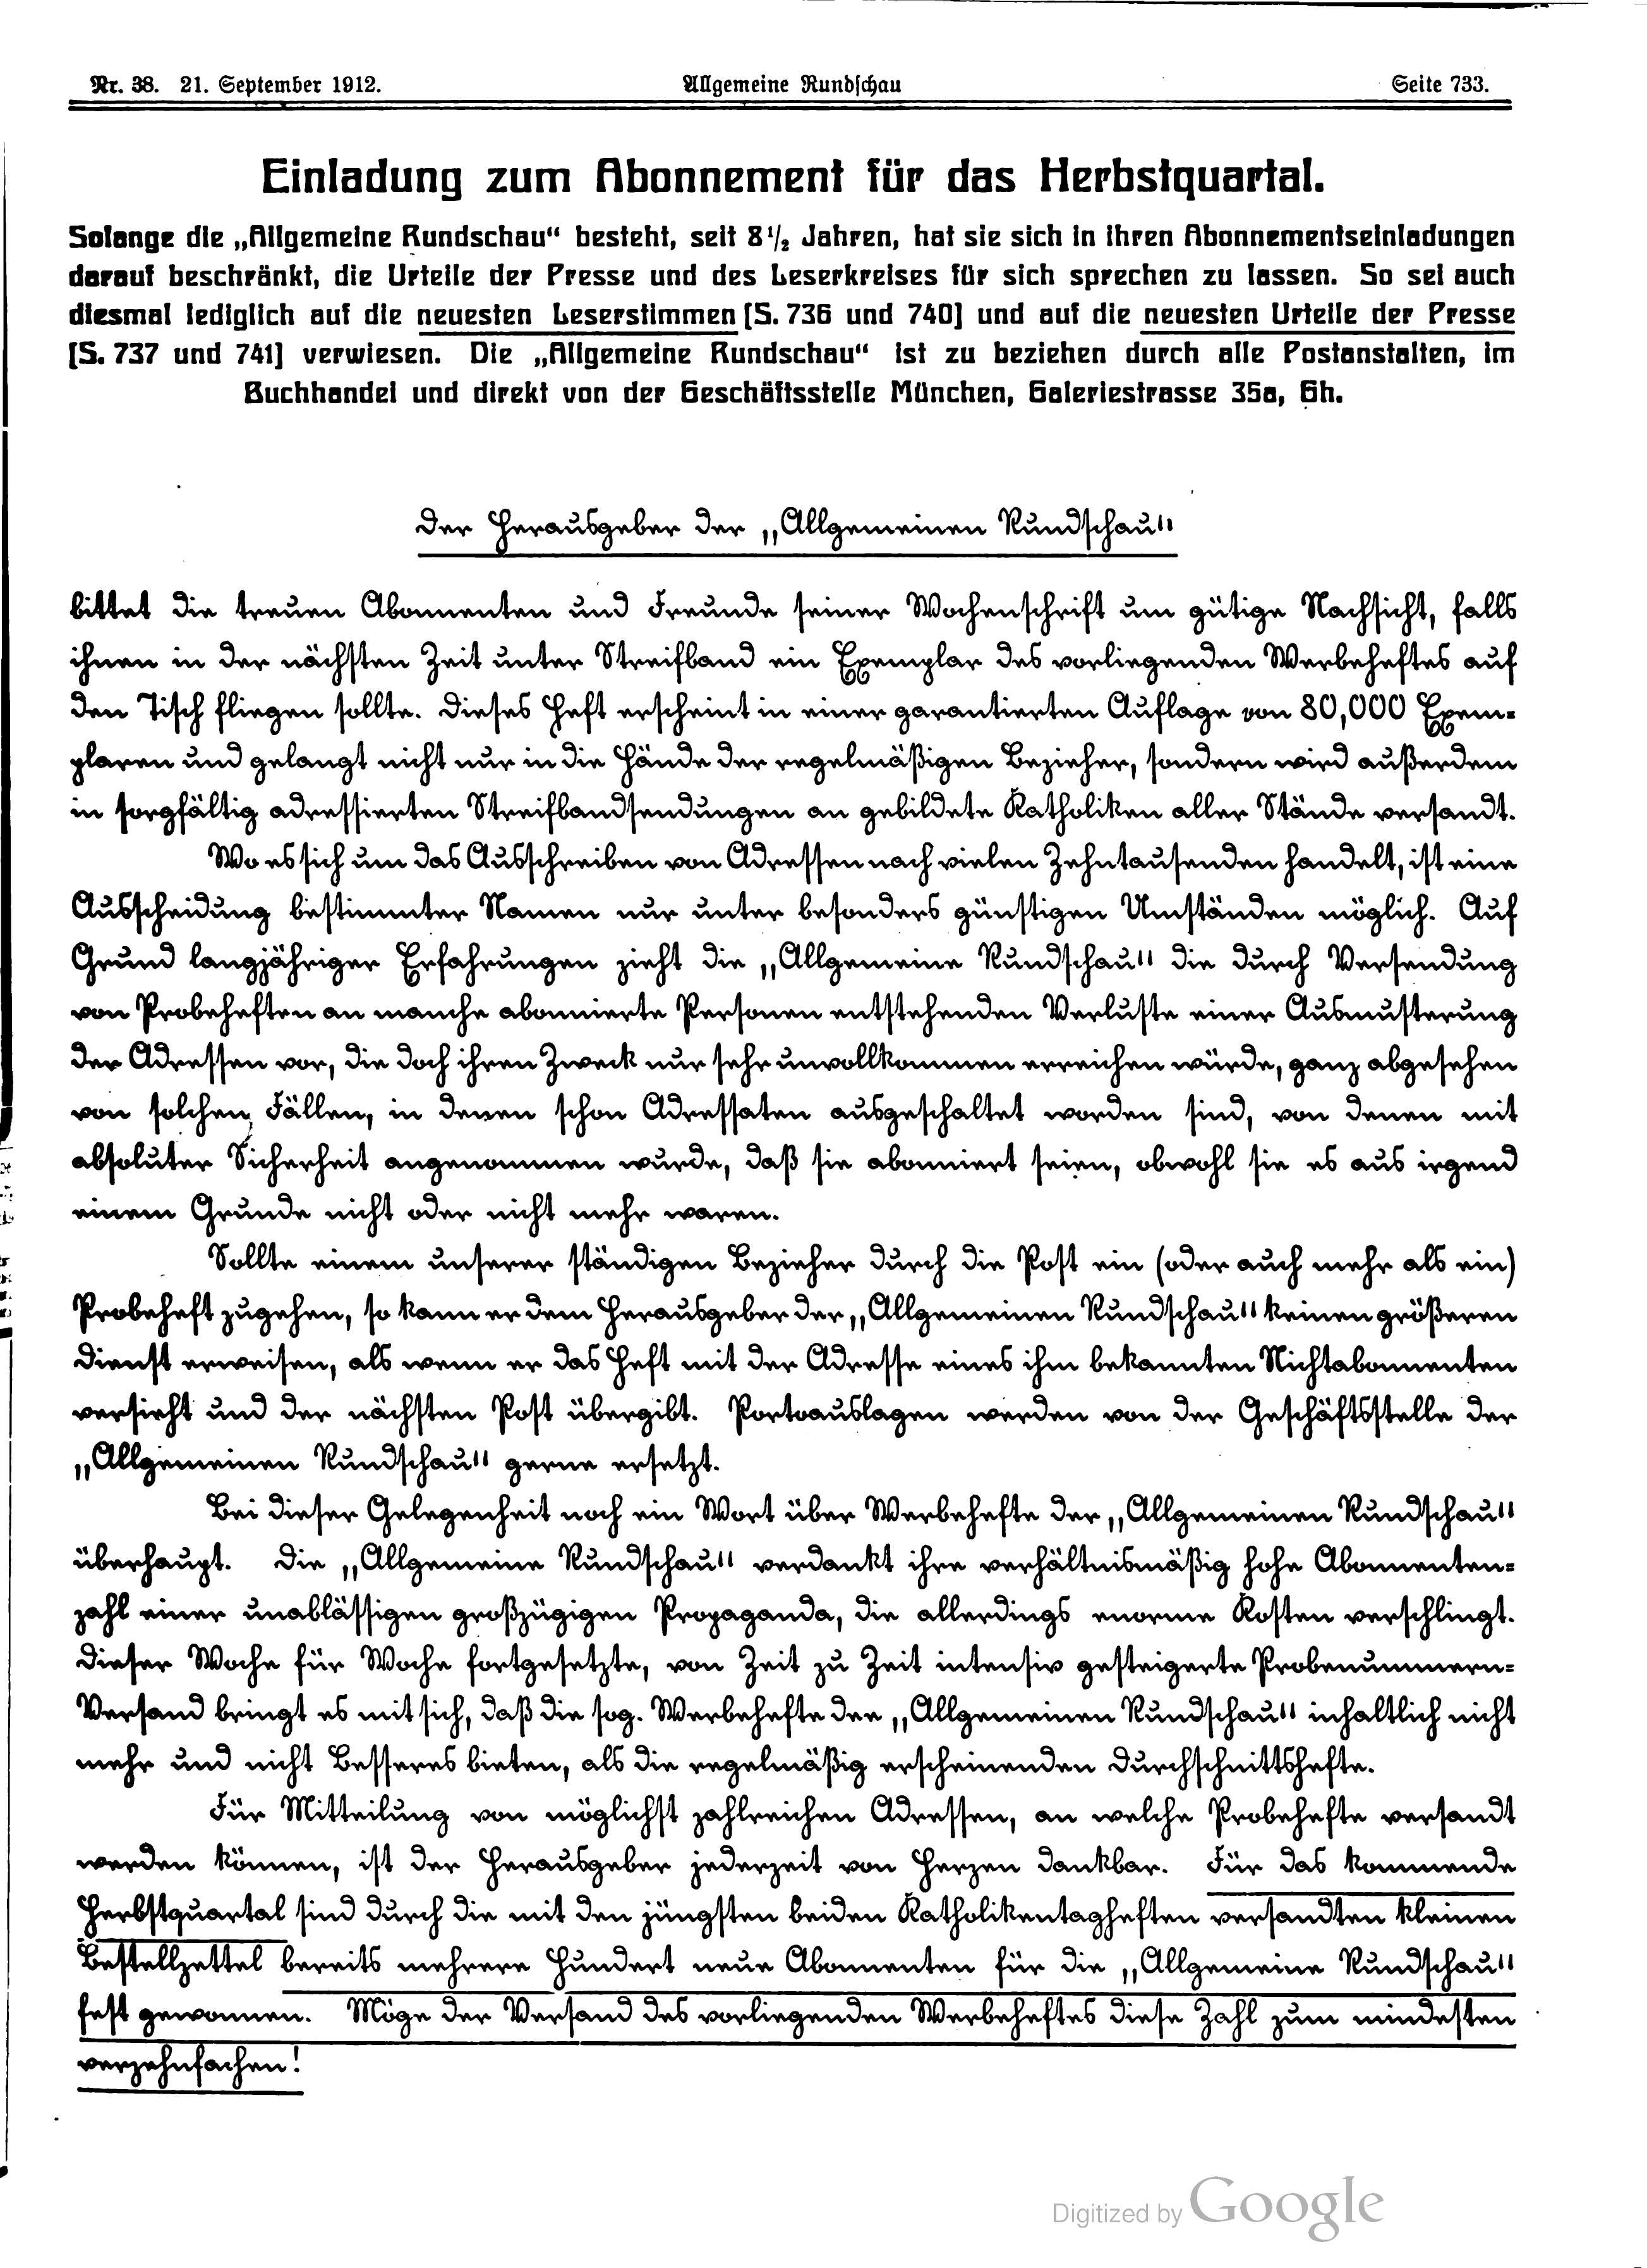 Nr. 38. 21. September 1912. Allgemeine Rundschau Seite 733.
Einladung zum Abonnement für das Herbstquartal.
Solange die „Allgemeine Rundschau“ besteht, seit 8½ Jahren, hat sie sich in ihren Abonnementseinladungen
darauf beschränkt, die Urteile der Presse und des Leserkreises für sich sprechen zu lassen. So sei auch
diesmal lediglich auf die neuesten Leserstimmen [S. 736 und 740] und auf die neuesten Urteile der Presse
[S. 737 und 741] verwiesen. Die „Allgemeine Rundschau“ ist zu beziehen durch alle Postanstalten, im
Buchhandel und direkt von der Geschäftsstelle München, Galeriestrasse 35a, Gh.
Der Herausgeber der „Allgemeinen Rundschau“
bittet die treuen Abonnenten und Freunde seiner Wochenschrift um gütige Nachsicht, falls
ihnen in der nächsten Zeit unter Streifband ein Exemplar des vorliegenden Werbeheftes auf
den Tisch fliegen sollte. Dieses Heft erscheint in einer garantierten Auflage von 80,000 Exem-
plaren und gelangt nicht nur in die Hände der regelmäßigen Bezieher, sondern wird außerdem
in sorgfältig adressierten Streifbandsendungen an gebildete Katholiken aller Stände versandt.
Wo es sich um das Ausschreiben von Adressen nach vielen Zehntausenden handelt, ist eine
Ausscheidung bestimmter Namen nur unter besonders günstigen Umständen möglich. Auf
Grund langjähriger Erfahrungen zieht die „Allgemeine Rundschau“ die durch Versendung
von Probeheften an manche abonnierte Personen entstehenden Verluste einer Ausmusterung
der Adressen vor, die doch ihren Zweck nur sehr unvollkommen erreichen würde, ganz abgesehen
von solchen Fällen, in denen schon Adressaten ausgeschaltet worden sind, von denen mit
absoluter Sicherheit angenommen wurde, daß sie abonniert seien, obwohl sie es aus irgend
einem Grunde nicht oder nicht mehr waren.
Sollte einem unserer ständigen Bezieher durch die Post ein (oder auch mehr als ein)
Probeheft zugehen, so kann er dem Herausgeber der „Allgemeinen Rundschau“ keinen größeren
Dienst erweisen, als wenn er das Heft mit der Adresse eines ihm bekannten Nichtabonnenten
versieht und der nächsten Post übergibt. Portoauslagen werden von der Geschäftsstelle der
„Allgemeinen Rundschau“ gerne ersetzt.
Bei dieser Gelegenheit noch ein Wort über Werbehefte der „Allgemeinen Rundschau“
überhaupt. Die „Allgemeine Rundschau“ verdankt ihre verhältnismäßig hohe Abonnenten-
zahl einer unablässigen großzügigen Propaganda, die allerdings enorme Kosten verschlingt.
Dieser Woche für Woche fortgesetzte, von Zeit zu Zeit intensiv gesteigerte Probenummern-
Versand bringt es mit sich, daß die sog. Werbehefte der „Allgemeinen Rundschau“ inhaltlich nicht
mehr und nicht Besseres bieten, als die regelmäßig erscheinenden Durchschnittshefte.
Für Mitteilung von möglichst zahlreichen Adressen, an welche Probehefte versandt
werden können, ist der Herausgeber jederzeit von Herzen dankbar. Für das kommende
Herbstquartal sind durch die mit den jüngsten beiden Katholikentagheften versandten kleinen
Bestellzettel bereits mehrere Hundert neue Abonnenten für die „Allgemeine Rundschau“
fest gewonnen. Möge der Versand des vorliegenden Werbeheftes diese Zahl zum mindesten
verzehnfachen!
Digitized by Google